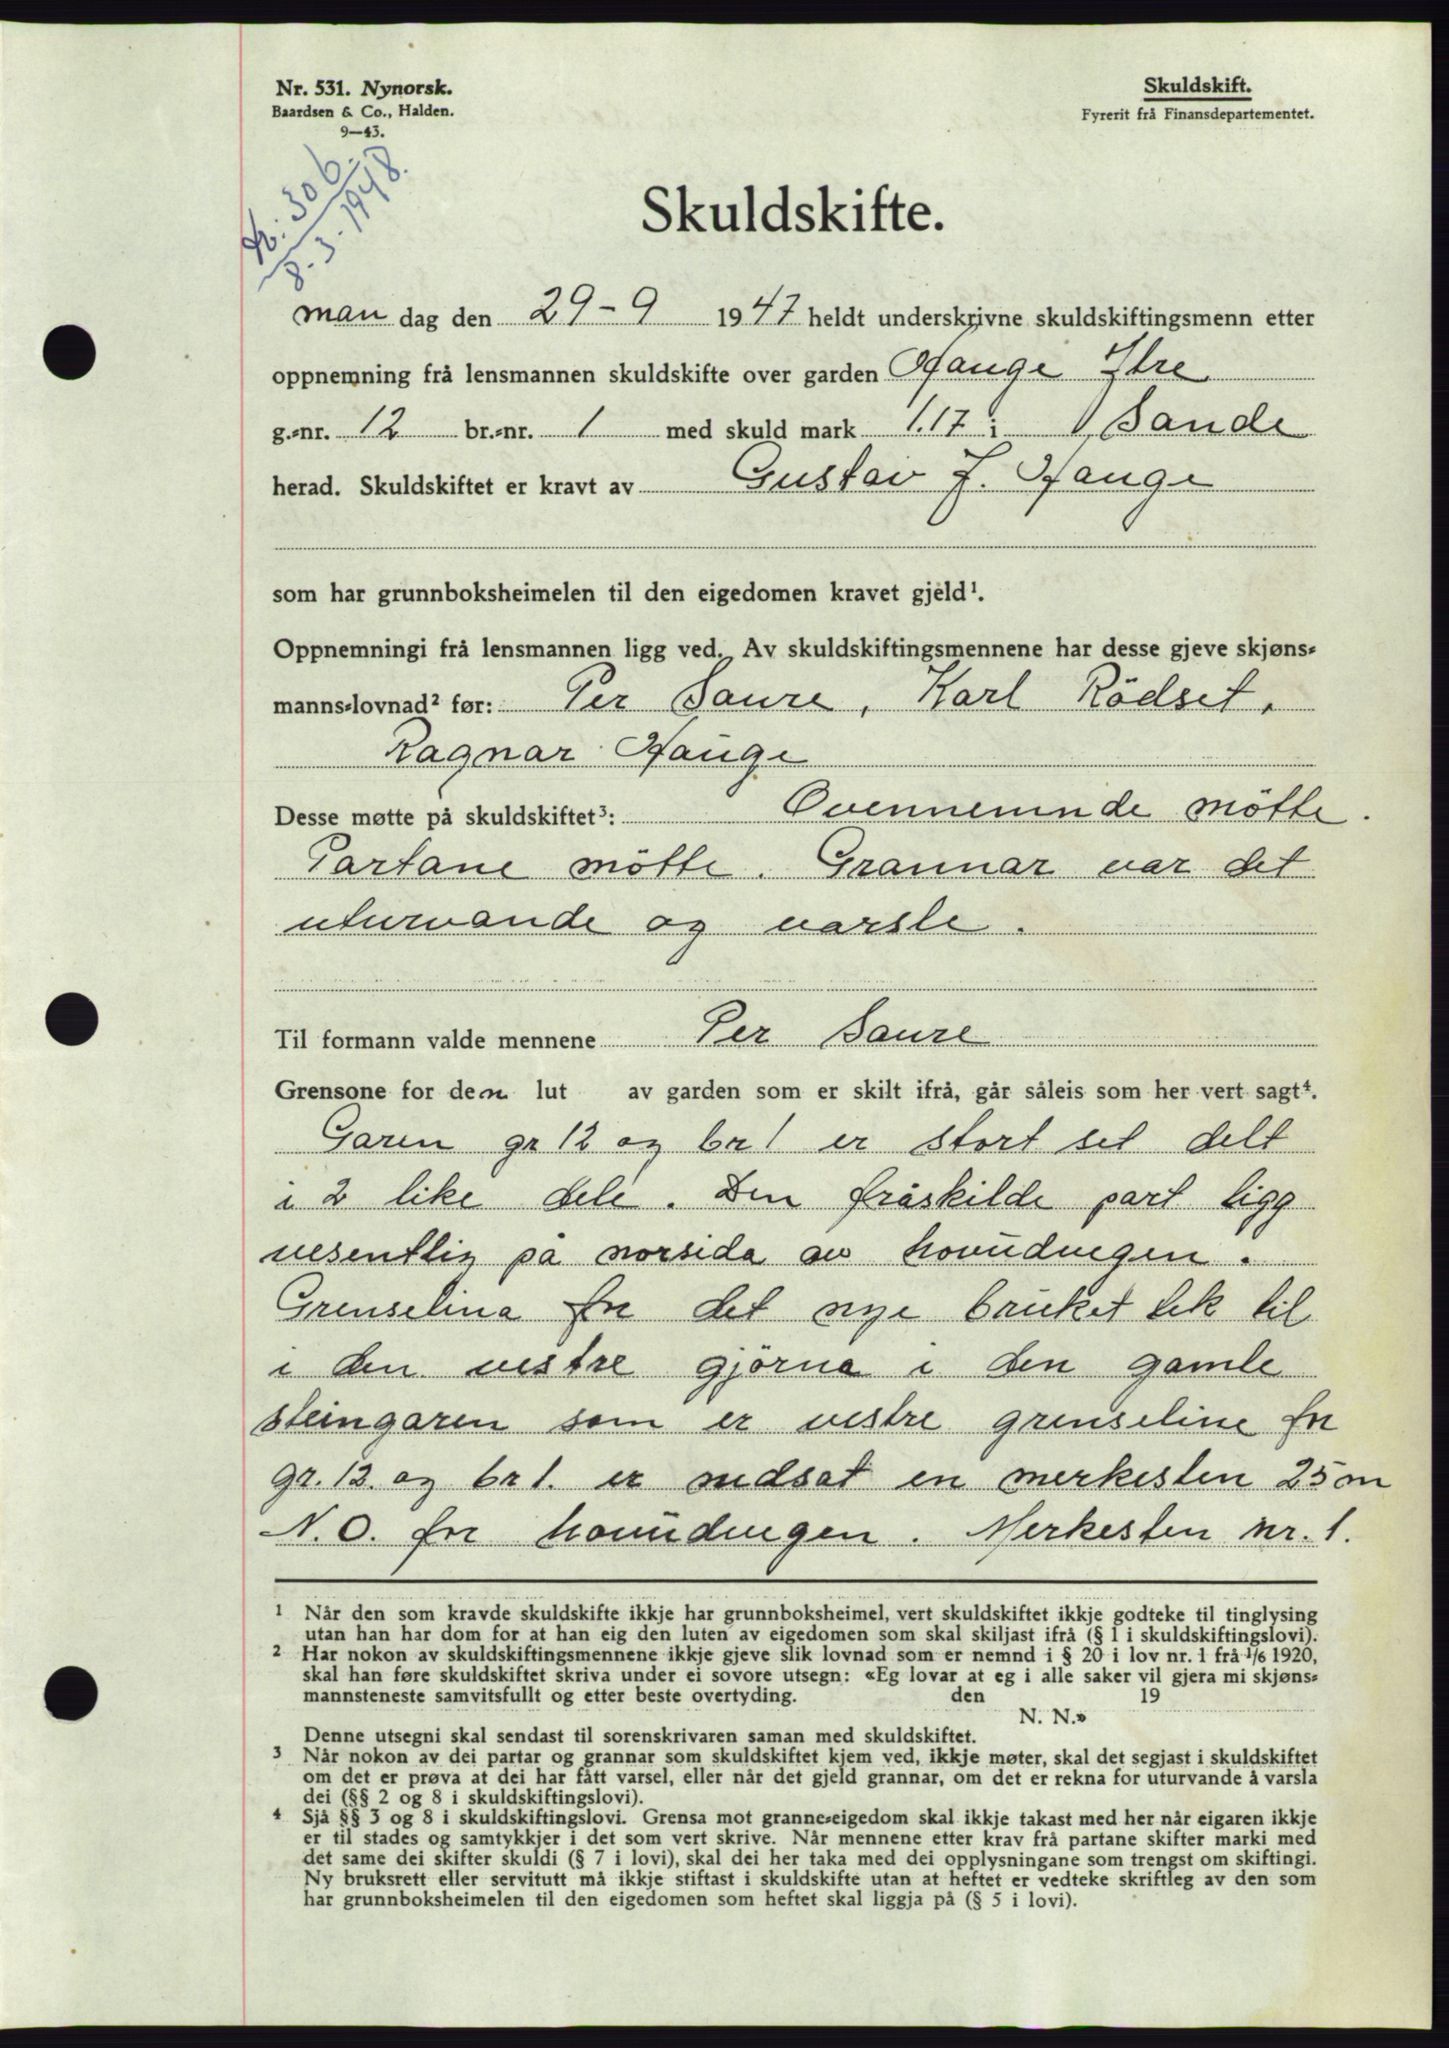 Nr. 531. Nynorsk.
Baardsen & Co., Halden.
9—43.
Skuldskift.
Fyrerit frå Finansdepartementet.
306
8-3-1948.
Skuldskifte.
man dag den 29-9 1947 heldt underskrivne skuldskiftingsmenn etter
oppnemning frå lensmannen skuldskifte over garden Hauge Ytre
g.=nr. 12 br.=nr. 1 med skuld mark 1.17 i Sande
herad. Skuldskiftet er kravt av Gustav J. Hauge
som har grunnboksheimelen til den eigedomen kravet gjeld¹.
Oppnemningi frå lensmannen ligg ved. Av skuldskiftingsmennene har desse gjeve skjøns=
manns=lovnad² før: Per Saure, Karl Rödset,
Ragnar Hauge
Desse møtte på skuldskiftet³: Ovennemnde mötte.
Partane mötte. Grannar var det
uturvande og varsle.
Til formann valde mennene Per Saure
Grensone for den lut av garden som er skilt ifrå, går såleis som her vert sagt⁴.
Garen gr 12 og br 1 er stort set delt
i 2 like dele. Den fråskilde part ligg
vesentlig på norsida av hovudvegen.
Grenselina for det nye bruket tek til
i den vestre gjörna i den gamle
steingaren som er vestre grenseline for
gr. 12. og br 1. er nedsat en merkesten 25 m
N.O. for hovudvegen. Merkesten nr. 1.
1 Når den som kravde skuldskifte ikkje har grunnboksheimel, vert skuldskiftet ikkje godteke til tinglysing
utan han har dom for at han eig den luten av eigedomen som skal skiljast ifrå (§ 1 i skuldskiftingslovi).
2 Har nokon av skuldskiftingsmennene ikkje gjeve slik lovnad som er nemnd i § 20 i lov nr. 1 frå 1/6 1920,
skal han føre skuldskiftet skriva under ei sovore utsegn: «Eg lovar at eg i alle saker vil gjera mi skjøns=
mannsteneste samvitsfullt og etter beste overtyding. den 19
N. N.»
Denne utsegni skal sendast til sorenskrivaren saman med skuldskiftet.
3 Når nokon av dei partar og grannar som skuldskiftet kjem ved, ikkje møter, skal det segjast i skuldskiftet
om det er prøva at dei har fått varsel, eller når det gjeld grannar, om det er rekna for uturvande å varsla
dei (§§ 2 og 8 i skuldskiftingslovi).
4 Sjå §§ 3 og 8 i skuldskiftingslovi. Grensa mot granne=eigedom skal ikkje takast med her når eigaren ikkje
er til stades og samtykkjer i det som vert skrive. Når mennene etter krav frå partane skifter marki med
det same dei skifter skuldi (§ 7 i lovi), skal dei her taka med dei opplysningane som trengst om skiftingi.
Ny bruksrett eller servitutt må ikkje stiftast i skuldskifte utan at heftet er vedteke skriftleg av den som
har grunnboksheimelen til den eigedomen som heftet skal liggja på (§ 5 i lovi).